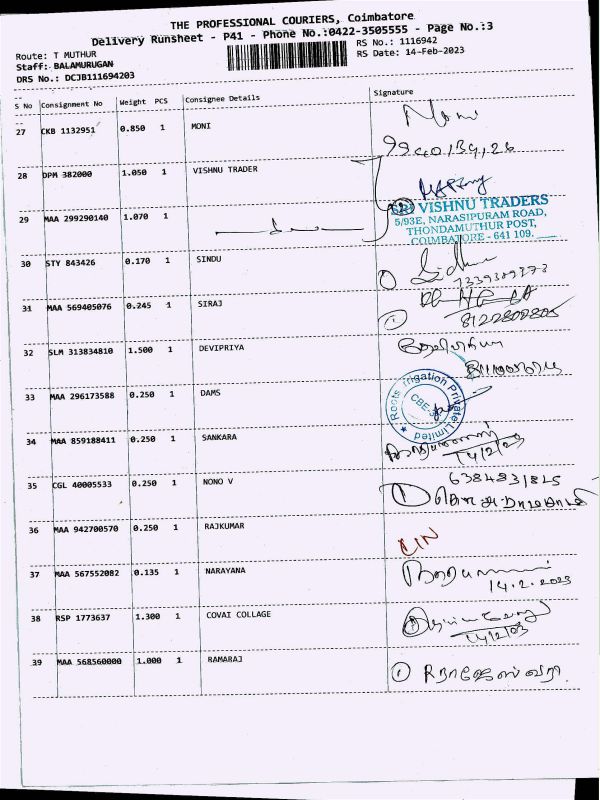 THE PROFESSIONAL COURIERS, Coimbatore
Delivery Runsheet - P41 - Phone No.:0422-3505555 - Page No.:3
Route: T MUTHUR
RS No.: 1116942
Staff: BALAMURUGAN
RS Date: 14-Feb-2023
DRS No.: DCJB111694203
S No Consignment No Weight PCS Consignee Details Signature
27 CKB 1132951 0.850 1 MONI
28 DPM 382000 1.050 1 VISHNU TRADER
SRI VISHNU TRADERS
29 MAA 299290140 1.070 1
5/93E, NARASIPURAM ROAD,
THONDAMUTHUR POST,
COIMBATORE - 641 109.
30 STY 843426 0.170 1 SINDU
31 MAA 569405076 0.245 1 SIRAJ
32 SLM 313834810 1.500 1 DEVIPRIYA
33 MAA 296173588 0.250 1 DAMS
Roots Irrigation Private Limited
34 MAA 859188411 0.250 1 SANKARA
14/2/23
35 CGL 40005533 0.250 1 NONO V
6384831825
36 MAA 942700570 0.250 1 RAJKUMAR
37 MAA 567552082 0.135 1 NARAYANA
14.2.2023
38 RSP 1773637 1.300 1 COVAI COLLAGE
14/2/23
39 MAA 568560000 1.000 1 RAMARAJ